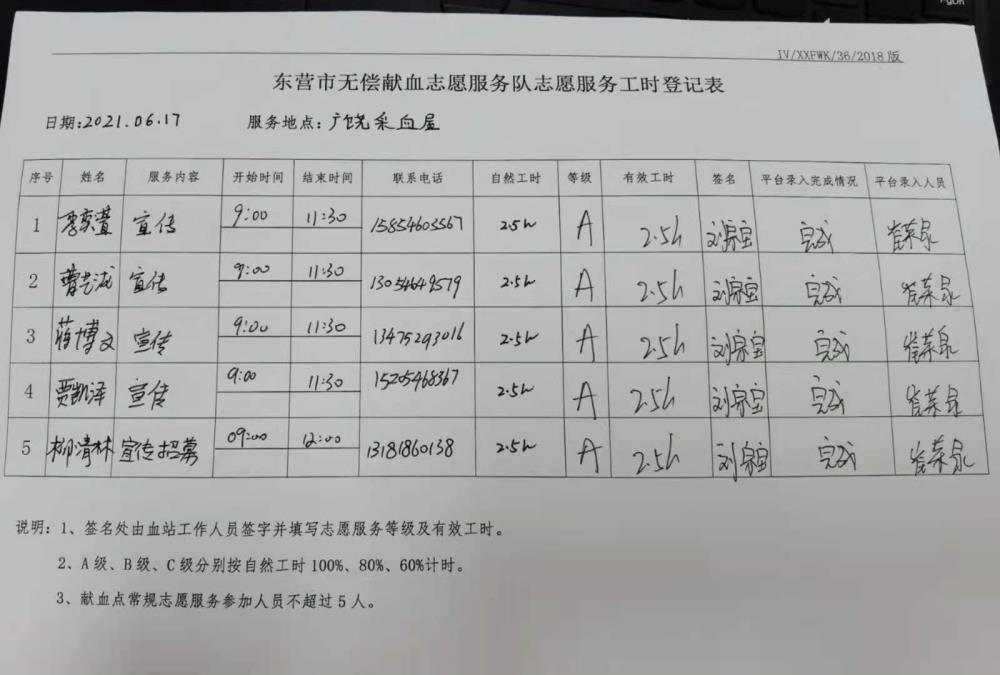 IV/XXFWK/36/2018版
东营市无偿献血志愿服务队志愿服务工时登记表
日期:2021.06.17 服务地点:广饶采血屋
序号 姓名 服务内容 开始时间 结束时间 联系电话 自然工时 等级 有效工时 签名 平台录入完成情况 平台录入人员
1 李奕萱 宣传 9:00 11:30 15854605567 2.5h A 2.5h 刘家宝 完成
2 曹艺泷 宣传 9:00 11:30 13054649579 2.5h A 2.5h 刘家宝 完成
3 蒋博文 宣传 9:00 11:30 13475293016 2.5h A 2.5h 刘家宝 完成
4 贾凯泽 宣传 9:00 11:30 15205468367 2.5h A 2.5h 刘家宝 完成
5 柳清林 宣传招募 09:00 12:00 13181860138 2.5h A 2.5h 刘家宝 完成
说明:1、签名处由血站工作人员签字并填写志愿服务等级及有效工时。
2、A级、B级、C级分别按自然工时100%、80%、60%计时。
3、献血点常规志愿服务参加人员不超过5人。